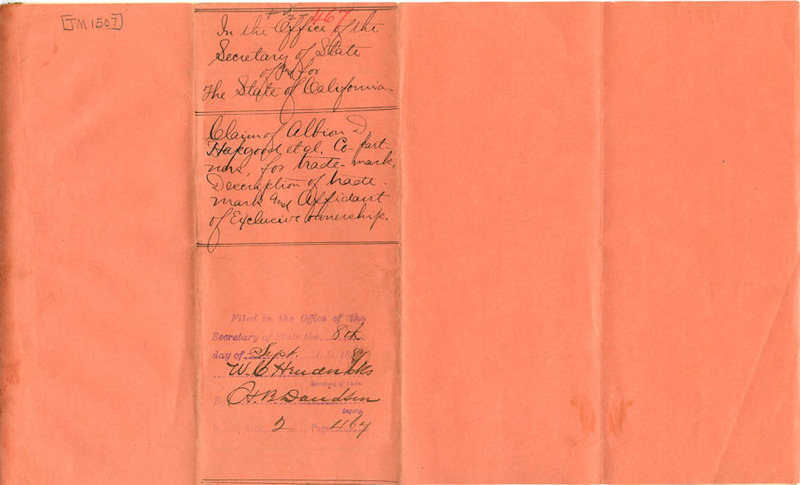 [TM 1507]
467
In the Office of the
Secretary of State
of and for
The State of California.
Claim of Albion D
Hapgood et al. Co-part-
ners, for trade-mark,
Description of trade-
mark and Affidavit
of Exclusive ownership.
Filed in the Office of the
Secretary of State the 8th
day of Sept. A.D. 18
W. C. Hendricks
Secretary of State
By H. B. Davidson
Deputy
Book 2, Page 464